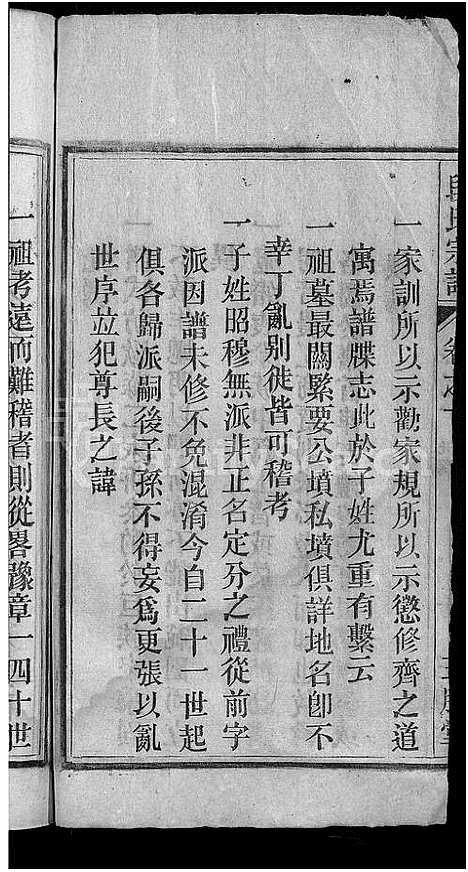 氏宗譜
一家訓所以示勸家規所以示懲修齊之道
寓焉譜牒志此於子姓尤重有繫云
一祖墓最關緊要公墳私墳俱詳地名卽不
幸丁亂别徙皆可稽考
一子姓昭穆無派非正名定分之禮從前字
派因譜未修不免混淆今自二十一世起
俱各歸派嗣後子孫不得妄爲更張以亂
世序並犯尊長之諱
一祖考遠而難稽者則從畧豫章一四十世